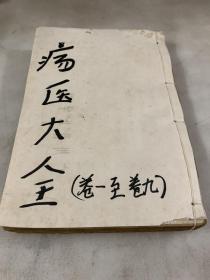 疡医大全
(卷一至卷九)